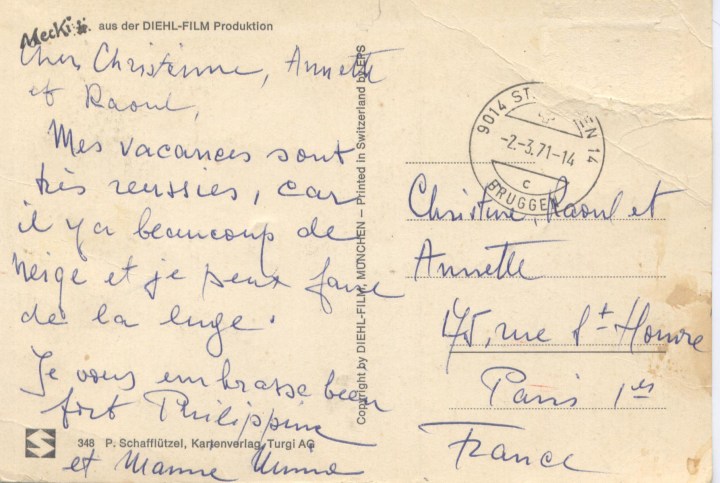 Mecki aus der DIEHL-FILM Produktion
Chers Christine, Annette
et Raoul,
Mes vacances sont
très reussies, car
il y a beaucoup de
neige et je peux faire
de la luge.
Je vous embrasse bien
fort Philippine
et Mamie
348 P. Schafflützel, Kartenverlag, Turgi AG
Copyright by DIEHL-FILM, MÜNCHEN – Printed in Switzerland by EPS
9014 ST. EN 14
-2.-3.71-14
c
BRUGGEN
Christine, Raoul et
Annette
175, rue St Honore
Paris 1er
France